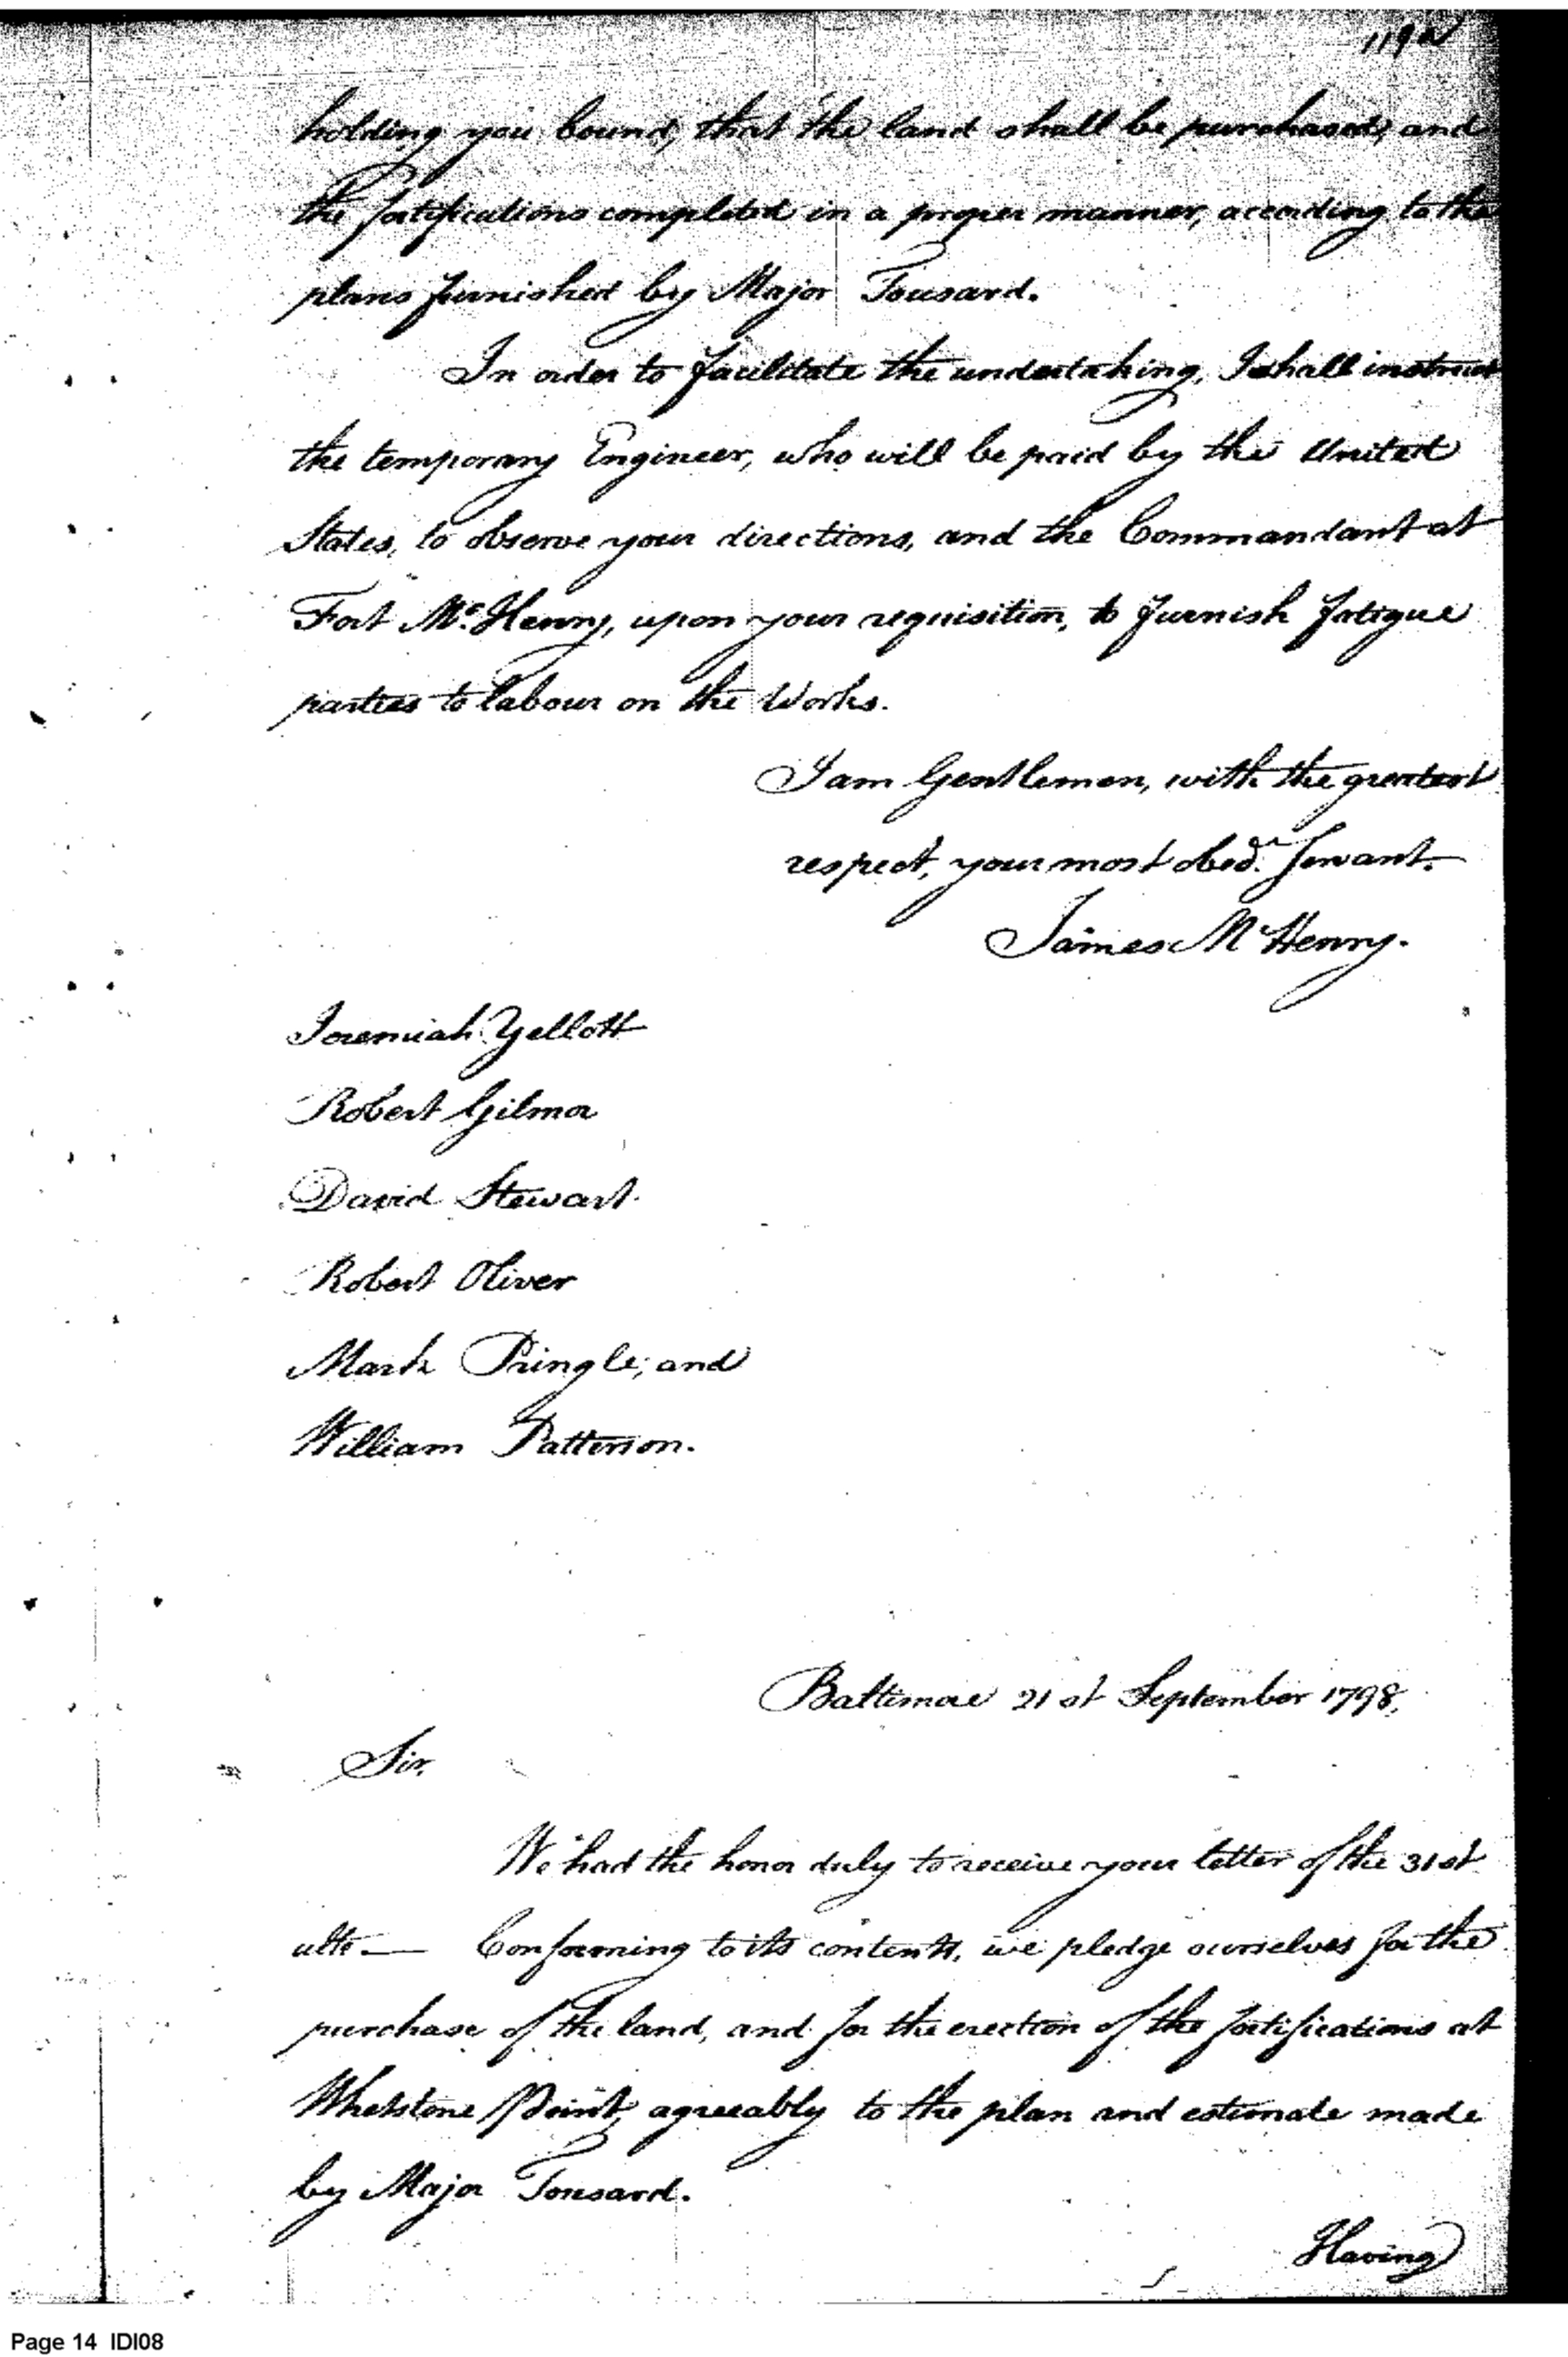 holding you bound, that the land shall be purchased, and
the fortifications completed in a proper manner, according to the
plans furnished by Major Tousard.
In order to facilitate the undertaking, I shall instruct
the temporary Engineer, who will be paid by the United
States, to observe your directions, and the Commandant at
Fort Mc.Henry, upon your requisition, to furnish fatigue
parties to labour on the Works.
I am Gentlemen, with the greatest
respect, your most obed. Servant.
James McHenry.
Jeremiah Yellott
Robert Gilmor
David Stewart
Robert Oliver
Mark Pringle; and
William Patterson.
Baltimore 21st September 1798,
Sir,
We had the honor duly to receive your letter of the 31st
ulto. — Conforming to its contents, we pledge ourselves for the
purchase of the land, and for the erection of the fortifications at
Whetstone Point, agreeably to the plan and estimate made
by Major Tousard.
Having
Page 14 IDI08